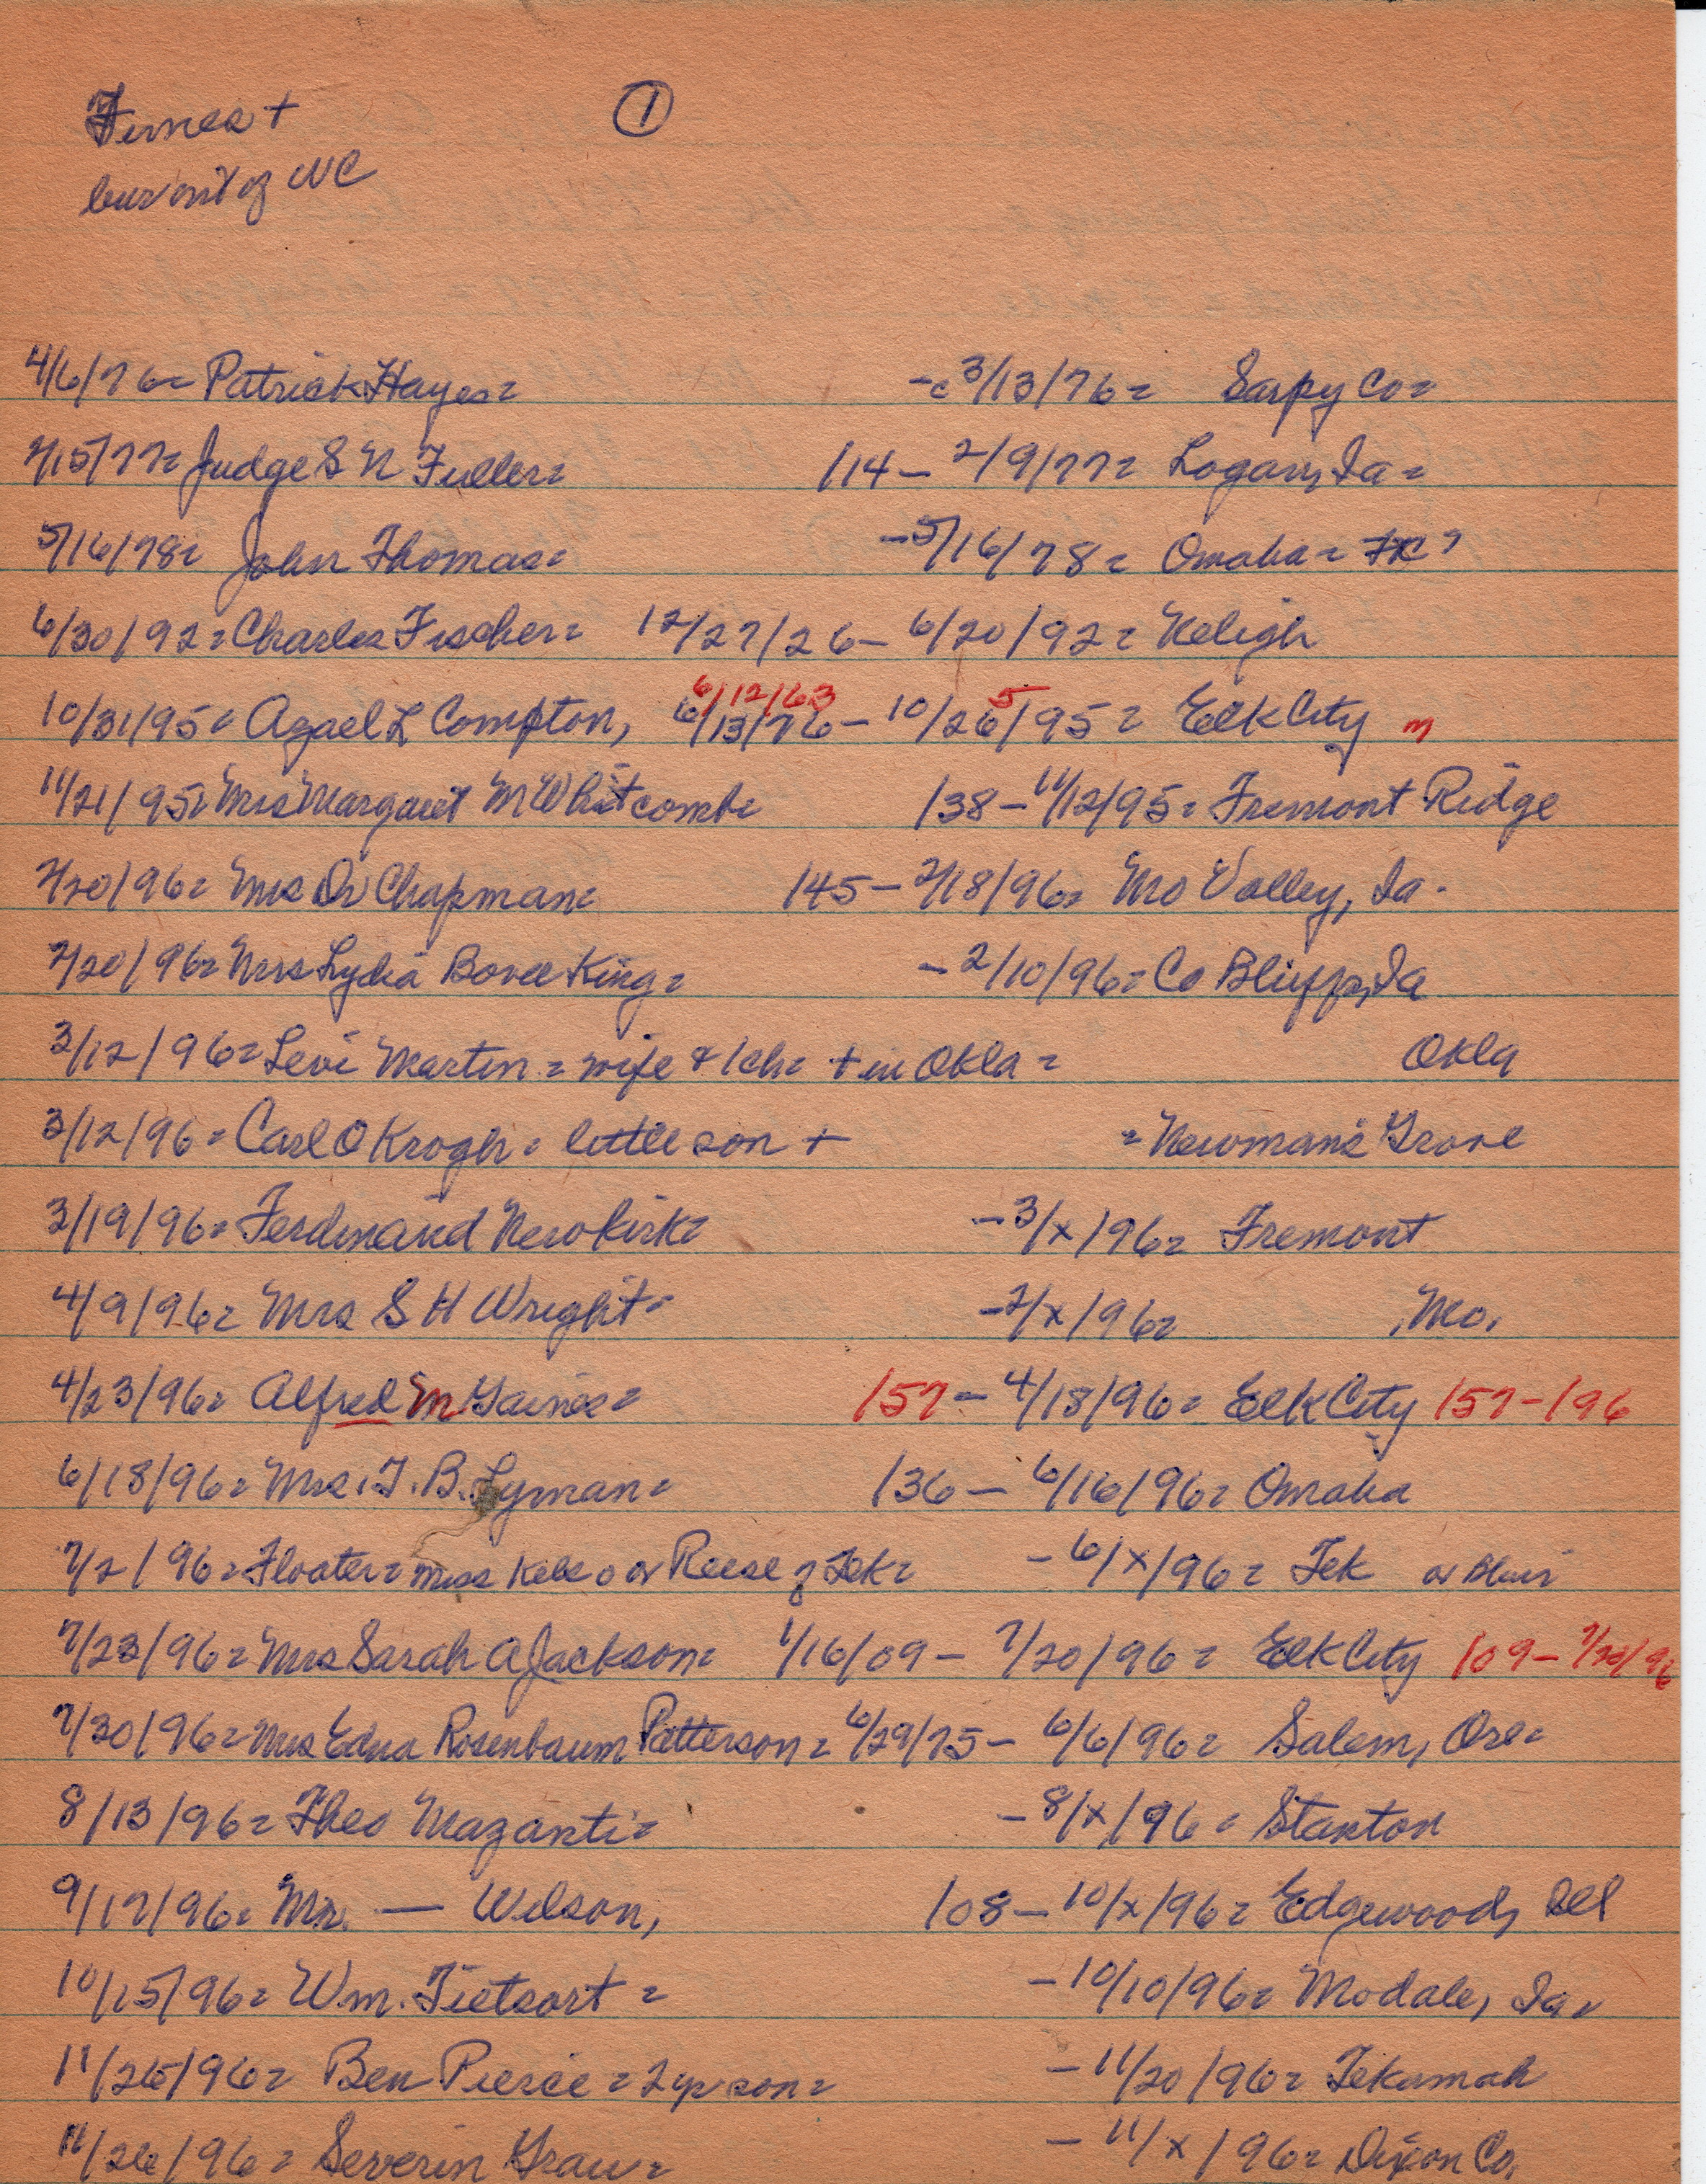 Times +
bur out of WC
①
4/6/76= Patrick Hayes= -c 3/13/76= Sarpy Co=
2/15/77= Judge S N Fuller= /14- 2/9/77= Logan, Ia=
5/16/78= John Thomas= -5/16/78= Omaha=
6/30/92= Charles Fischer= 12/27/26- 6/20/92= Neligh
10/31/95= Azael L Compton, 6/12/63 6/13/76- 10/26/95= 5 Elk City m
11/21/95= Mrs Margaret M Whitcomb= /38-11/12/95= Fremont Ridge
2/20/96= Mrs Dr Chapman= /45- 2/18/96= Mo Valley, Ia.
2/20/96= Mrs Lydia Bovee King= -2/10/96= Co Bluffs, Ia
3/12/96= Levi Martin= wife & 1 ch= + in Okla= Okla
3/12/96= Carl O Krogh= little son + = Newman's Grove
3/19/96= Ferdinand Newkirk= -3/x/96= Fremont
4/9/96= Mrs S H Wright= -2/x/96= , Mo.
4/23/96= Alfred M Gaines= /57- 4/18/96= Elk City /57-/96
6/18/96= Mrs. T. B. Lyman= /36- 6/16/96= Omaha
7/2/96= Floater= Miss or Reese of Tek= -6/x/96= Tek or Blair
7/23/96= Mrs Sarah A Jackson= 1/16/09- 7/20/96= Elk City /09-7/20/96
7/30/96= Mrs Edna Rosenbaum Patterson= 6/29/75- 6/6/96= Salem, Ore=
8/13/96= Theo Mazanti= -8/x/96= Stanton
9/17/96= Mr. — Wilson, /08-10/x/96= Edgewood, Ill
10/15/96= Wm. Tietsort= -10/10/96= Modale, Ia=
11/26/96= Ben Pierce= 2 yr son= -11/20/96= Tekamah
11/26/96= Severin Grau= -11/x/96= Dixon Co.